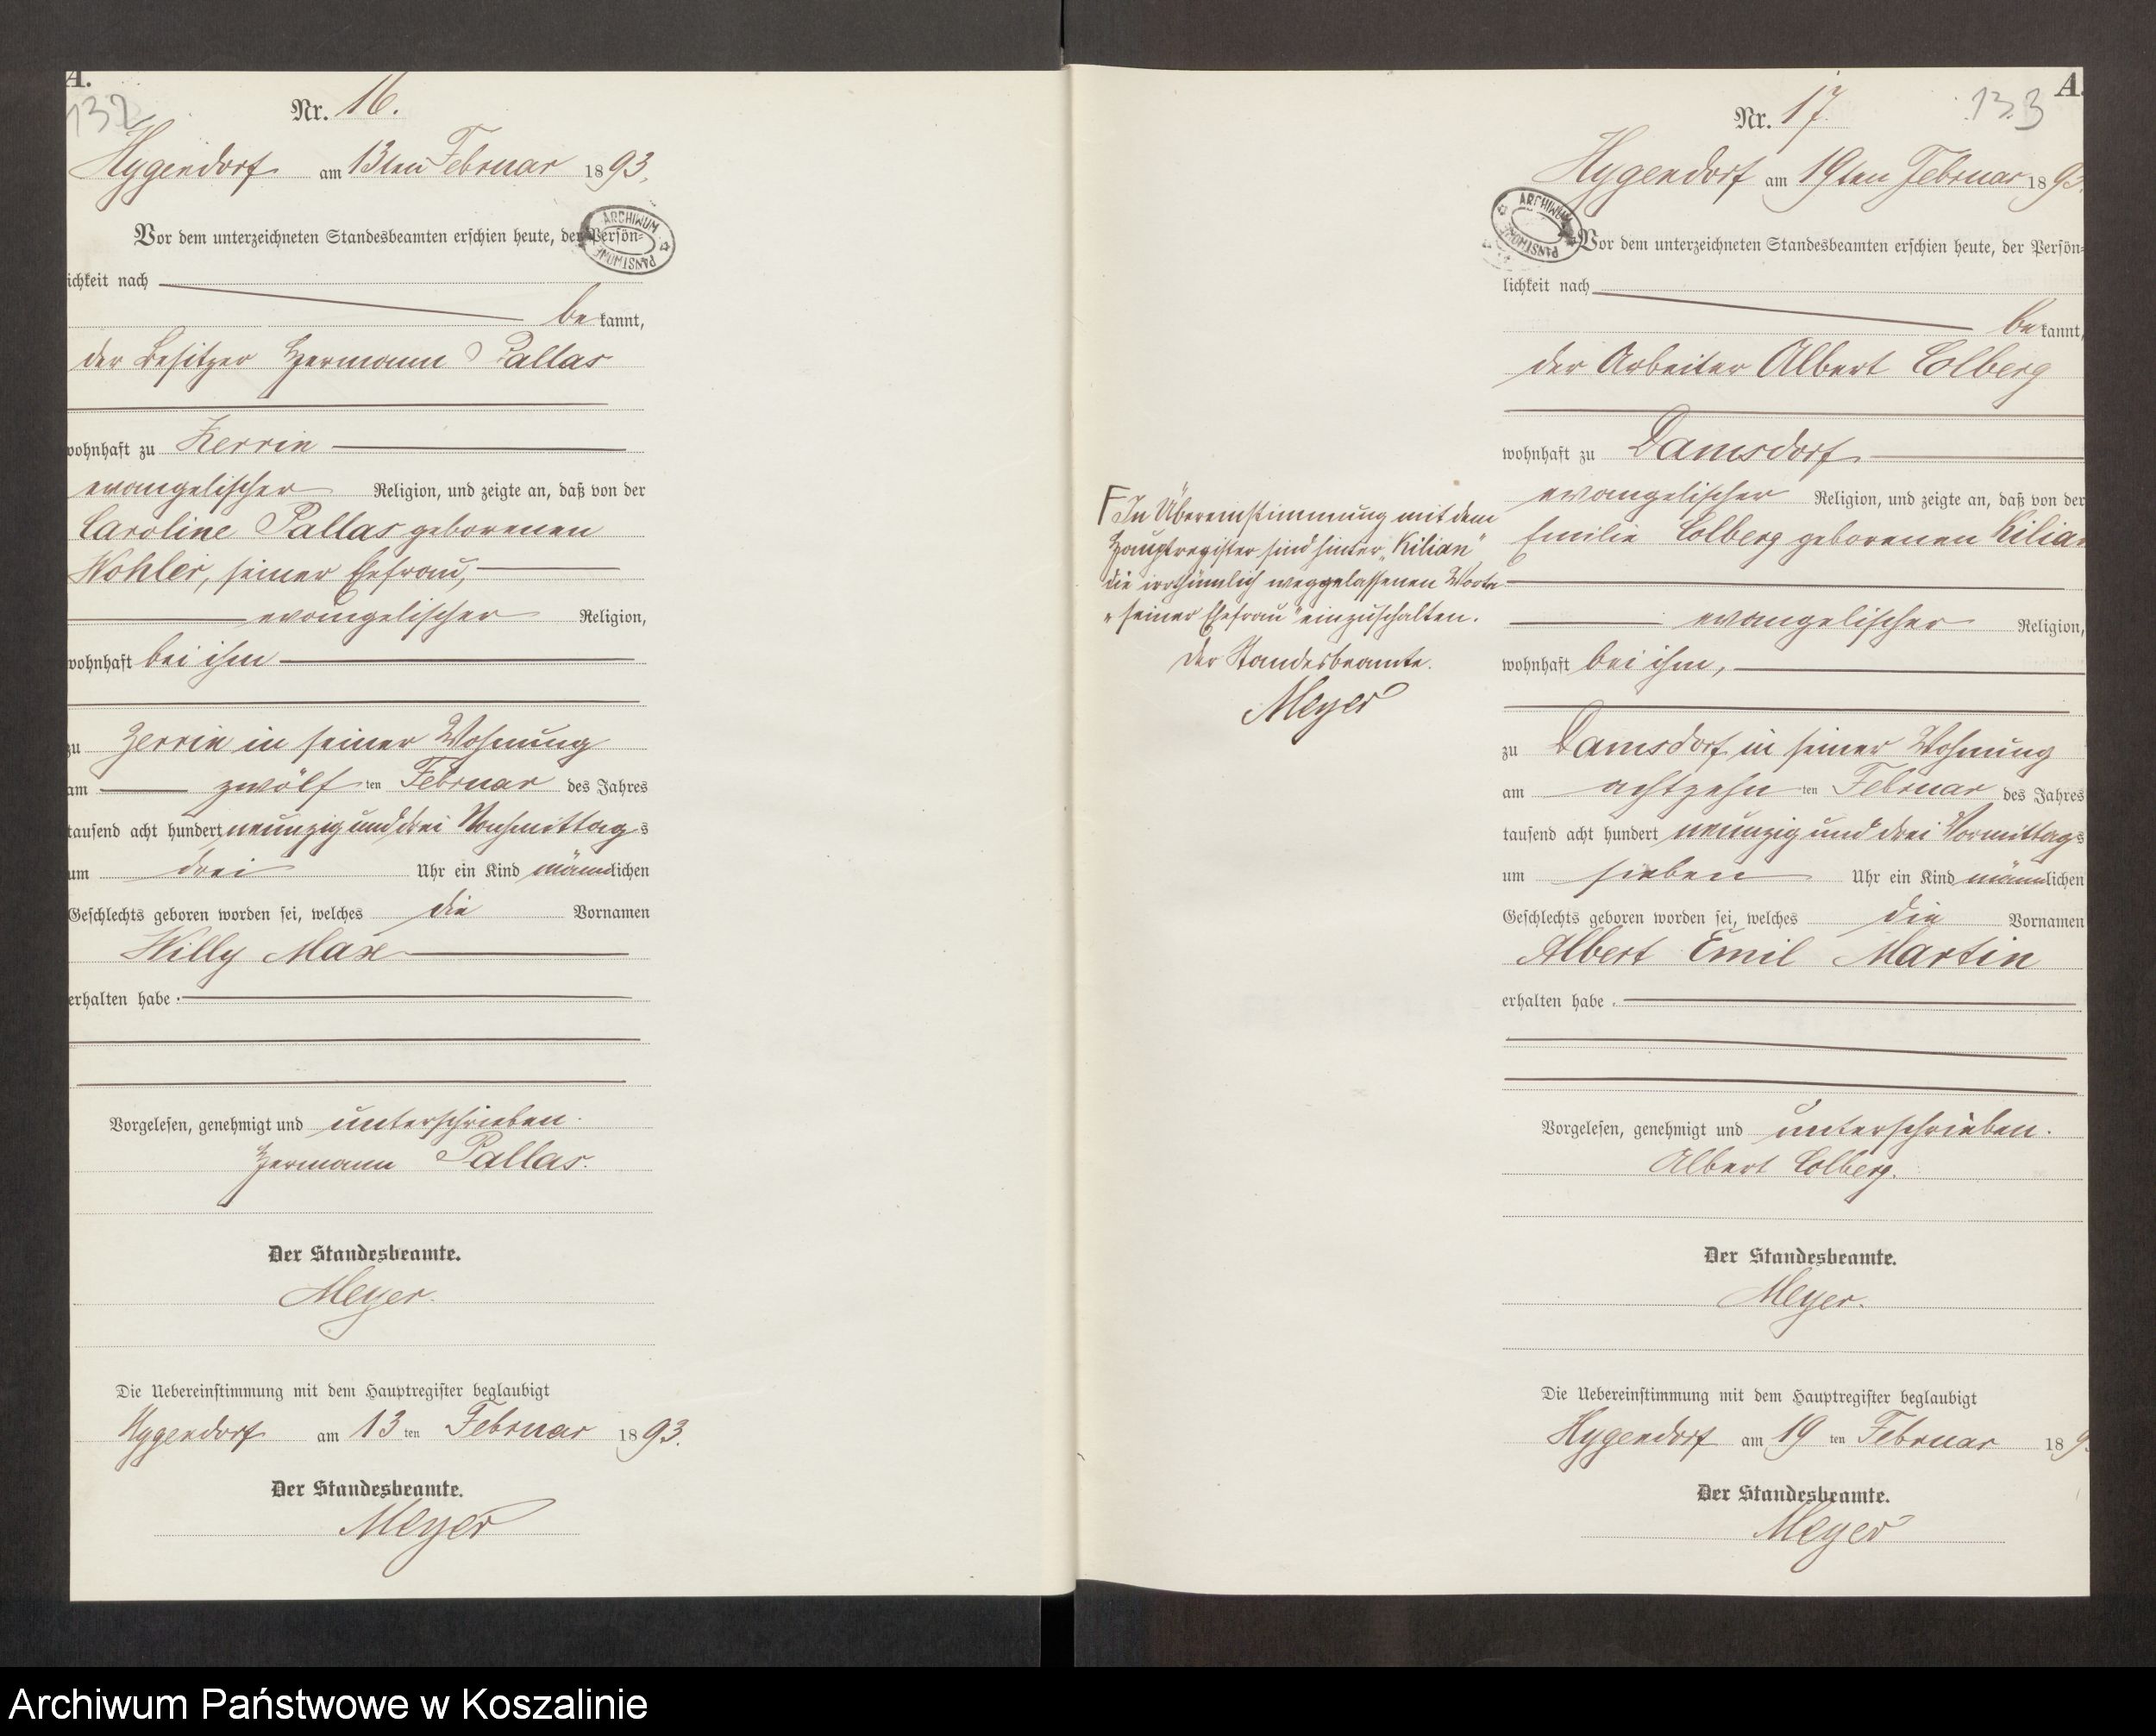 A.
132
Nr. 16.
Hygendorf am 13ten Februar 1893.
Vor dem unterzeichneten Standesbeamten erschien heute, der Persön-
ichkeit nach
bekannt,
der Besitzer Hermann Pallas
wohnhaft zu Zerrin
evangelischer Religion, und zeigte an, daß von der
Caroline Pallas geborenen
Wohler, seiner Ehefrau,
evangelischer Religion,
wohnhaft bei ihm
zu Zerrin in seiner Wohnung
am zwölften Februar des Jahres
tausend acht hundert neunzig und drei Nachmittags
um drei Uhr ein Kind männlichen
Geschlechts geboren worden sei, welches die Vornamen
Willy Max
erhalten habe.
Vorgelesen, genehmigt und unterschrieben.
Hermann Pallas.
Der Standesbeamte.
Meyer.
Die Uebereinstimmung mit dem Hauptregister beglaubigt
Hygendorf am 13ten Februar 1893.
Der Standesbeamte.
Meyer
ARCHIWUM PAŃSTWOWE
A.
133
Nr. 17.
Hygendorf am 19ten Februar 1893.
Vor dem unterzeichneten Standesbeamten erschien heute, der Persön-
lichkeit nach
bekannt,
der Arbeiter Albert Colberg
wohnhaft zu Damsdorf
evangelischer Religion, und zeigte an, daß von der
Emilie Colberg geborenen Kilian
evangelischer Religion,
wohnhaft bei ihm,
zu Damsdorf in seiner Wohnung
am achtzehnten Februar des Jahres
tausend acht hundert neunzig und drei Vormittags
um sieben Uhr ein Kind männlichen
Geschlechts geboren worden sei, welches die Vornamen
Albert Emil Martin
erhalten habe.
Vorgelesen, genehmigt und unterschrieben.
Albert Colberg.
Der Standesbeamte.
Meyer.
Die Uebereinstimmung mit dem Hauptregister beglaubigt
Hygendorf am 19ten Februar 189
Der Standesbeamte.
Meyer
In Übereinstimmung mit dem
Hauptregister sind hinter "Kilian"
die irrthümlich weggelassenen Worte
"seiner Ehefrau" einzuschalten.
Der Standesbeamte.
Meyer
ARCHIWUM PAŃSTWOWE
Archiwum Państwowe w Koszalinie